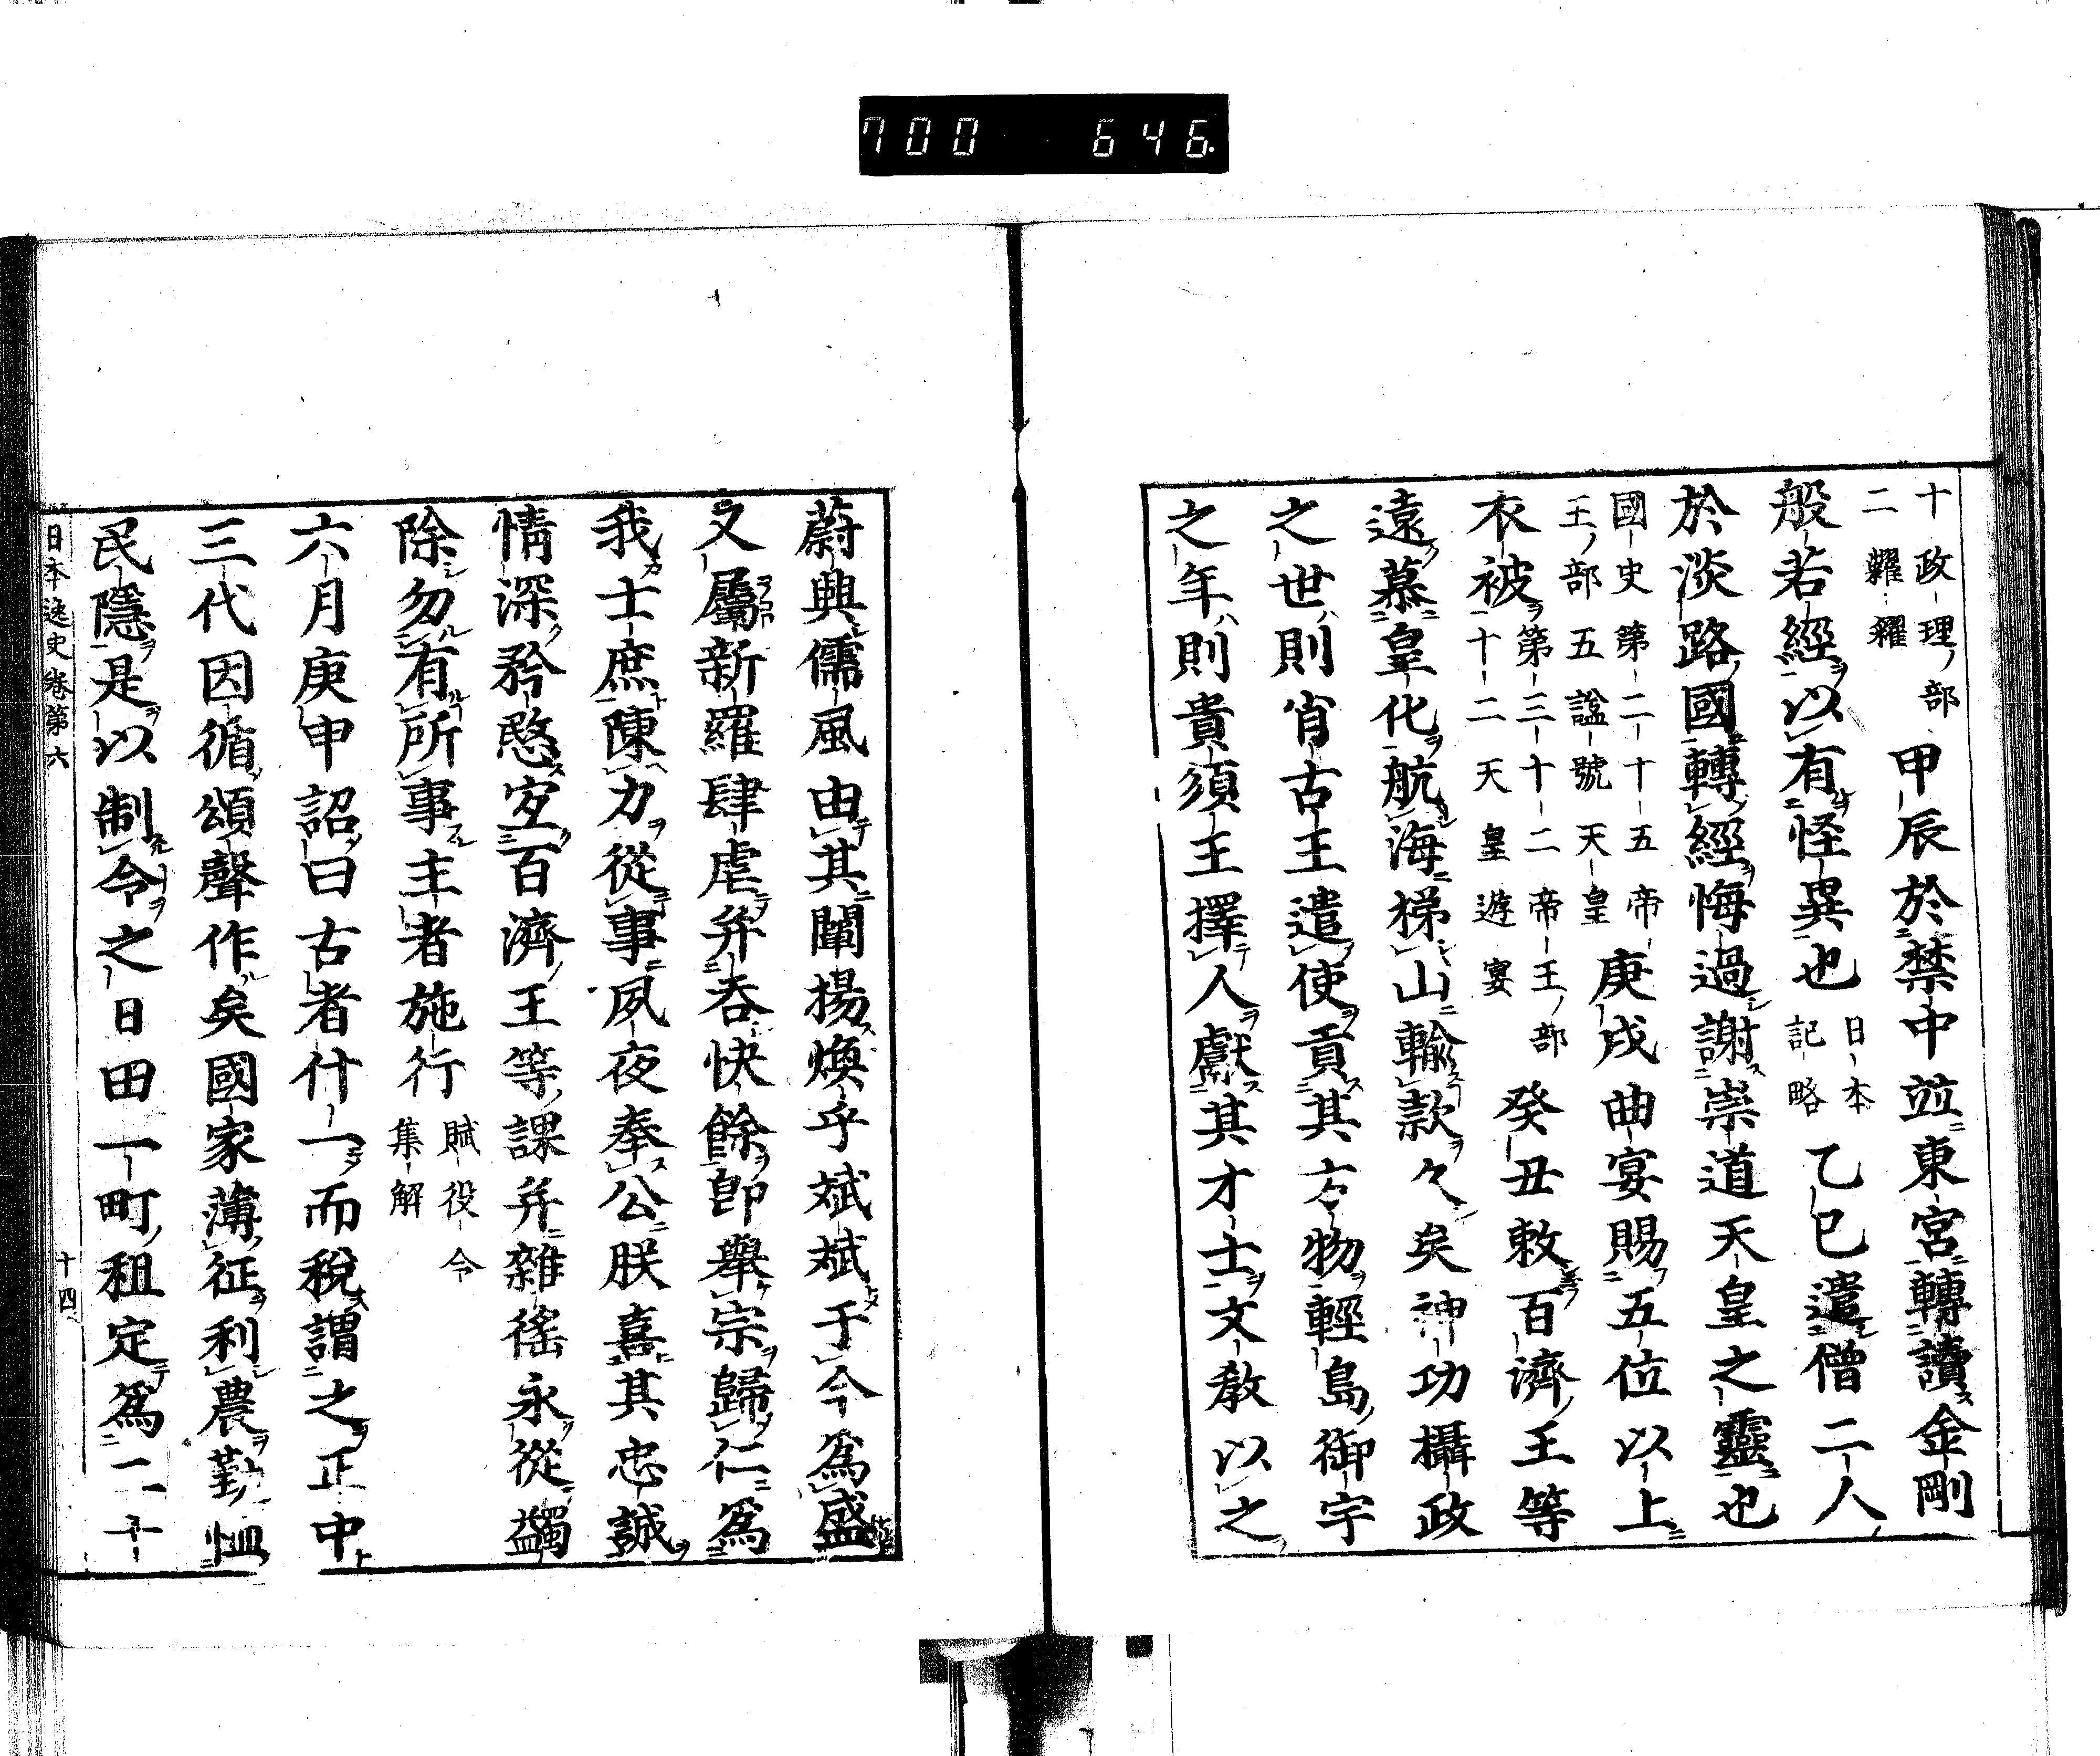 700 646.
十政理ノ部
二糶糴
甲辰於禁中並東宮轉讀金剛
般若經以有怪異也
日本
記略
乙巳遣僧二人
於淡路國轉經悔過謝崇道天皇之靈也
國史第二十五帝
王ノ部五諡號天皇
庚戌曲宴賜五位以上
衣被
第三十二帝王ノ部
十二天皇遊宴
癸丑敕百濟王等
遠慕皇化航海梯山輸款久矣神功攝政
之世則肖古王遣使貢其方物輕島御宇
之年則貴須王擇人獻其才士文教以之
蔚興儒風由其闡揚煥乎斌斌于今爲盛
又屬新羅肆虐并吞快餘卽舉宗歸仁爲
我士庶陳力從事夙夜奉公朕嘉其忠誠
情深矜愍宜百濟王等課并雜徭永從蠲
除勿有所事主者施行
賦役令
集解
六月庚申詔曰古者什一而稅謂之正中
三代因循頌聲作矣國家薄征利農勤恤
民隱是以制令之日田一町租定爲二十
日本逸史卷第六
十四